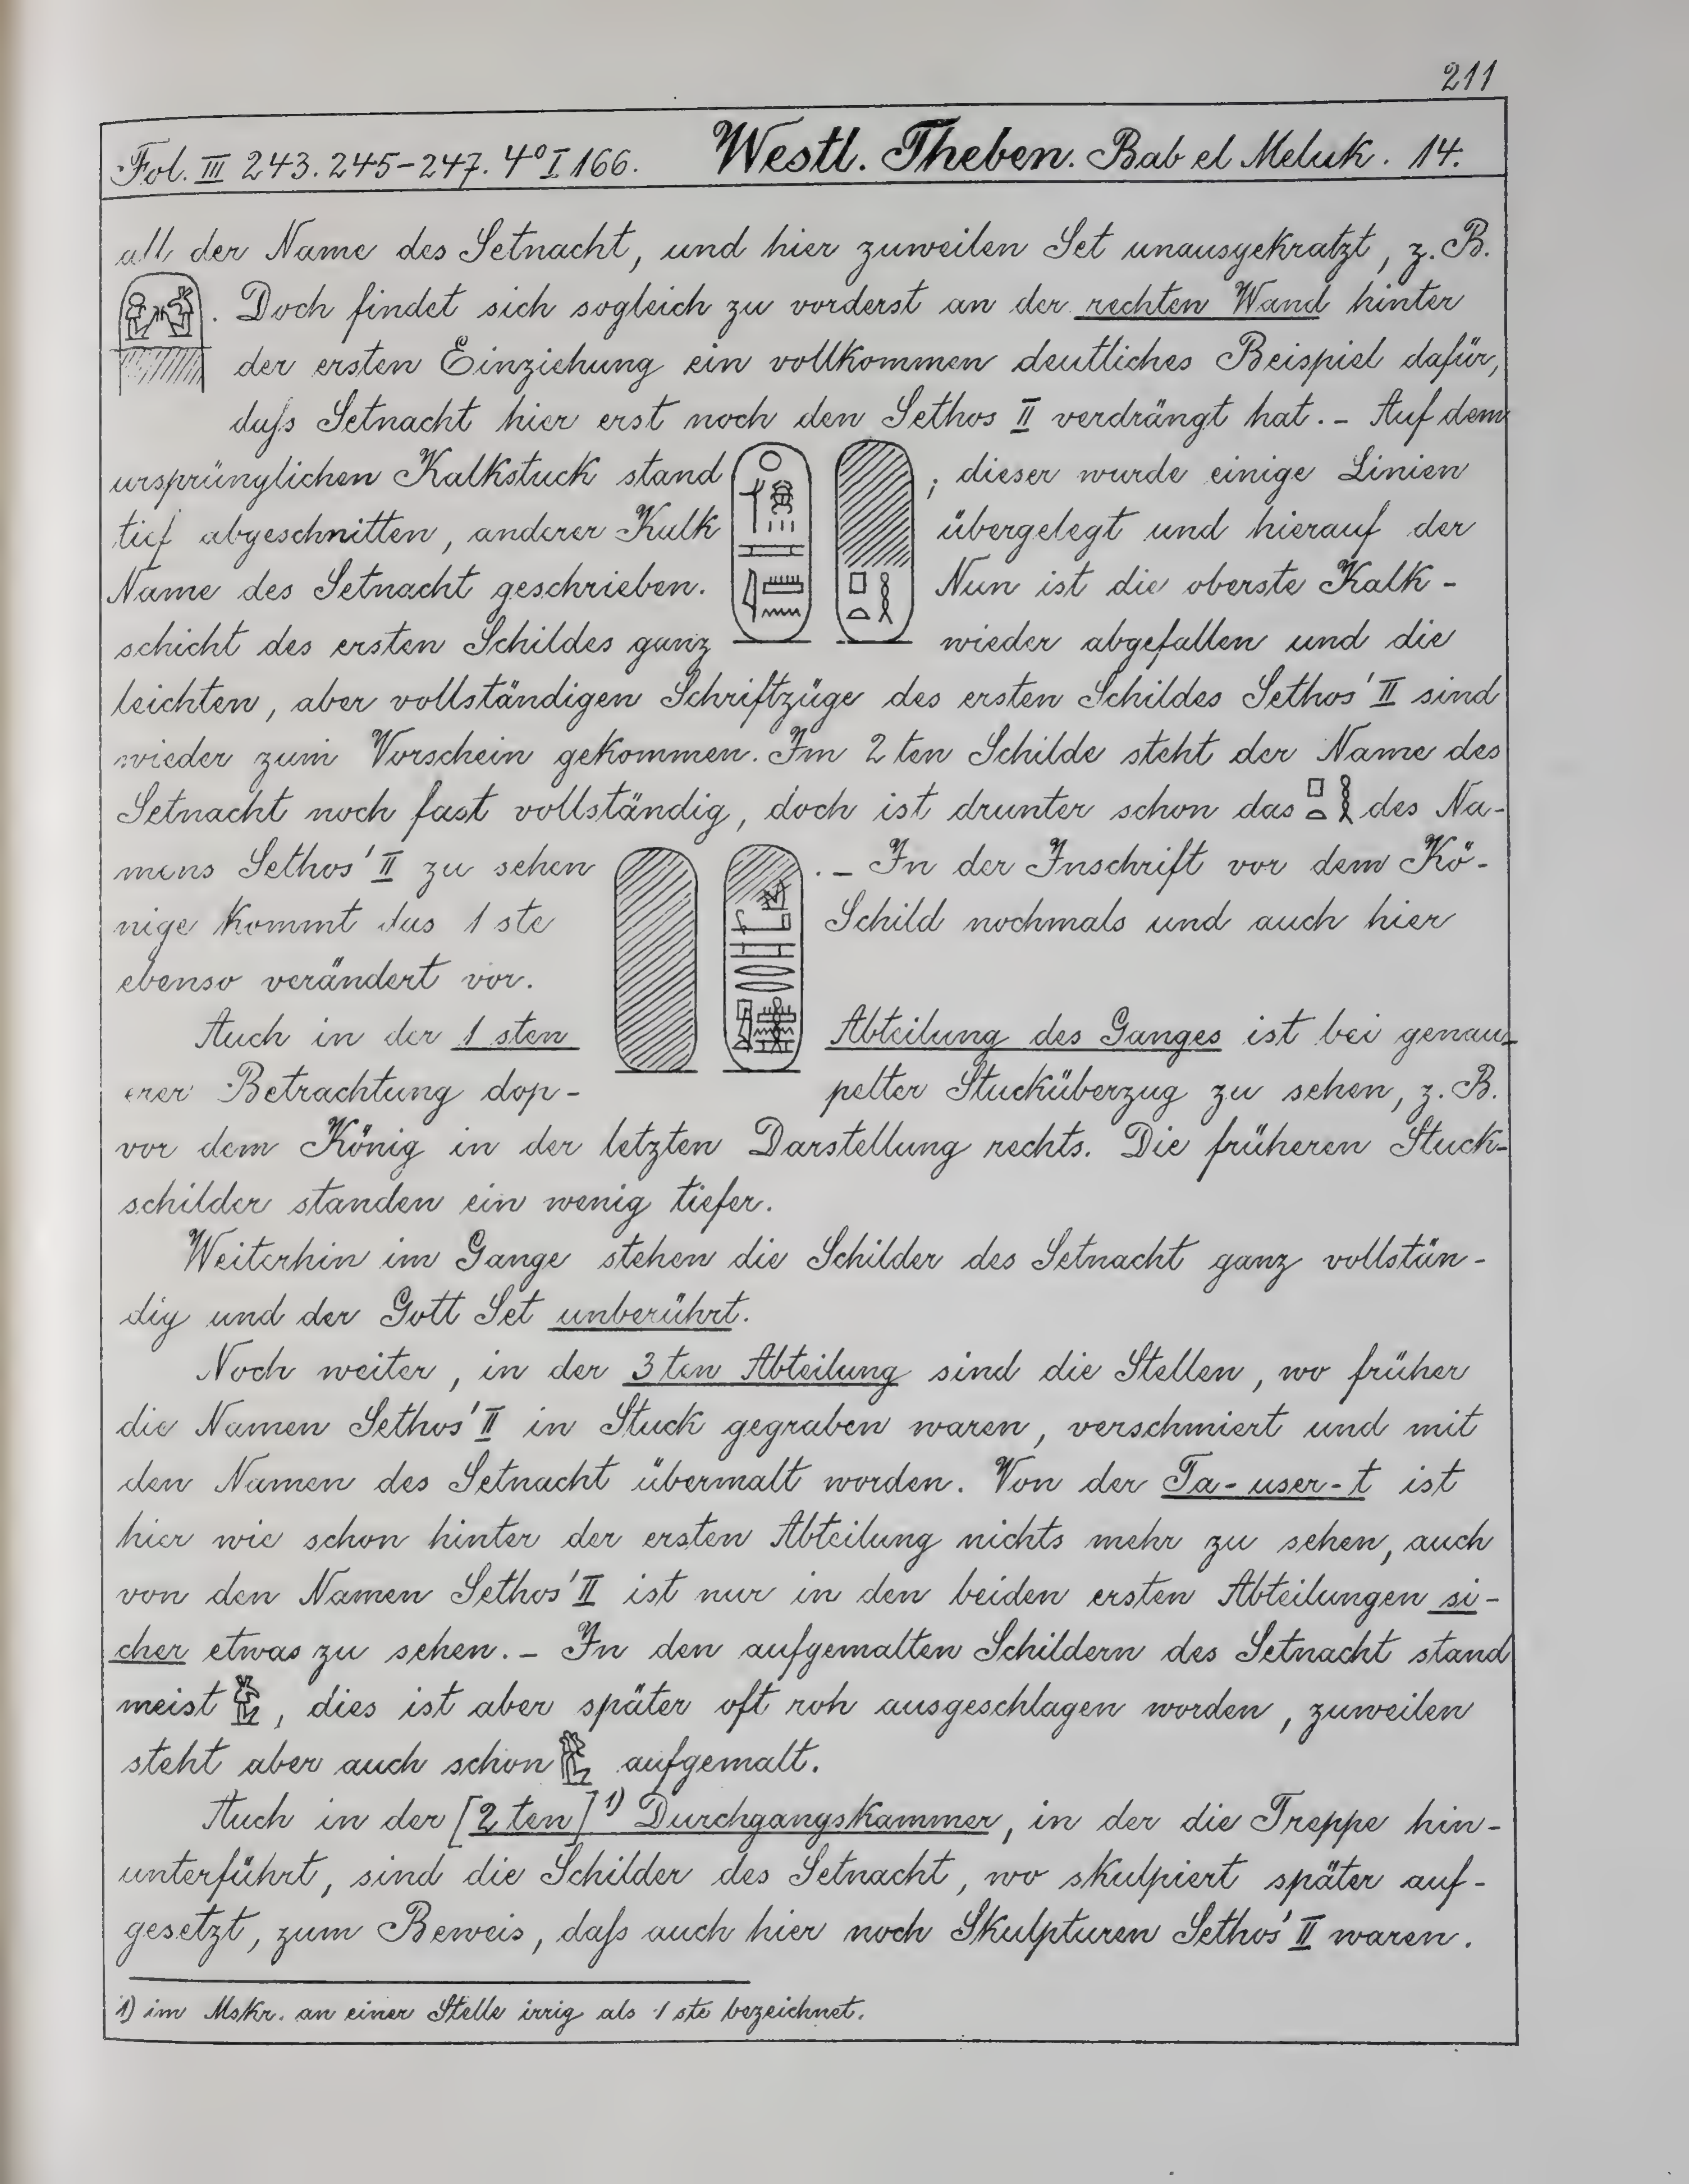 211
Fol. III 243. 245-247. 4° I 166. Westl. Theben. Bab el Meluk. 14.
all der Name des Setnacht, und hier zuweilen Set unausgekratzt, z. B.
. Doch findet sich sogleich zu vorderst an der rechten Wand hinter
der ersten Einziehung ein vollkommen deutliches Beispiel dafür,
daſs Setnacht hier erst noch den Sethos II verdrängt hat. - Auf dem
ursprünglichen Kalkstuck stand ; dieser wurde einige Linien
tief abgeschnitten, anderer Kalk übergelegt und hierauf der
Name des Setnacht geschrieben. Nun ist die oberste Kalk-
schicht des ersten Schildes ganz wieder abgefallen und die
leichten, aber vollständigen Schriftzüge des ersten Schildes Sethos' II sind
wieder zum Vorschein gekommen. Im 2ten Schilde steht der Name des
Setnacht noch fast vollständig, doch ist drunter schon das des Na-
mens Sethos' II zu sehen . - In der Inschrift vor dem Kö-
nige kommt das 1ste Schild nochmals und auch hier
ebenso verändert vor.
Auch in der 1sten Abteilung des Ganges ist bei genau-
erer Betrachtung dop- pelter Stucküberzug zu sehen, z. B.
vor dem König in der letzten Darstellung rechts. Die früheren Stuck-
schilder standen ein wenig tiefer.
Weiterhin im Gange stehen die Schilder des Setnacht ganz vollstän-
dig und der Gott Set unberührt.
Noch weiter, in der 3ten Abteilung sind die Stellen, wo früher
die Namen Sethos' II in Stuck gegraben waren, verschmiert und mit
den Namen des Setnacht übermalt worden. Von der Ta-user-t ist
hier wie schon hinter der ersten Abteilung nichts mehr zu sehen, auch
von den Namen Sethos' II ist nur in den beiden ersten Abteilungen si-
cher etwas zu sehen. - In den aufgemalten Schildern des Setnacht stand
meist , dies ist aber später oft roh ausgeschlagen worden, zuweilen
steht aber auch schon aufgemalt.
Auch in der [2ten]¹⁾ Durchgangskammer, in der die Treppe hin-
unterführt, sind die Schilder des Setnacht, wo skulpiert später auf-
gesetzt, zum Beweis, daſs auch hier noch Skulpturen Sethos' II waren.
1) im Mskr. an einer Stelle irrig als 1ste bezeichnet.